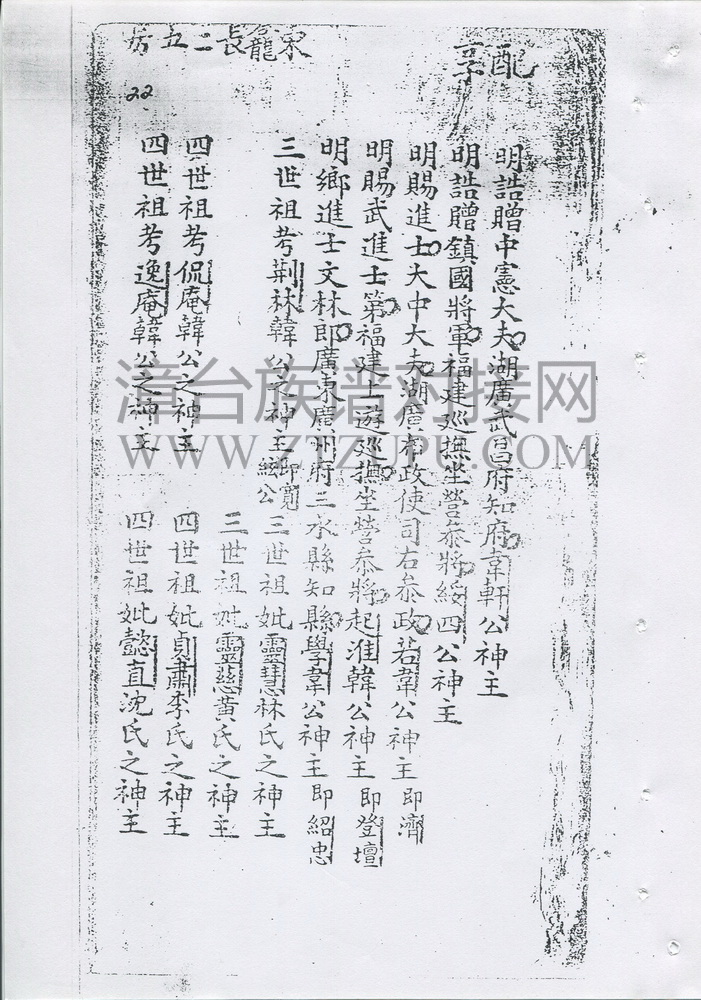 配享
明誥贈中憲大夫湖廣武昌府知府韋軒公神主
明誥贈鎮國將軍福建巡撫坐營叅將綬四公神主
明賜進士大中大夫湖廣布政使司右叅政若韋公神主即濟
明賜武進士第福建士遊巡撫坐營叅將起淮韓公神主即登壇
明鄉進士文林郎廣東廣州府三水縣知縣學韋公神主即紹忠
三世祖考荆林韓公之神主即寬絃公
三世祖妣靈慧林氏之神主
三世祖妣靈慈黃氏之神主
四世祖考侃庵韓公之神主
四世祖妣貞肅李氏之神主
四世祖考逸庵韓公之神主
四世祖妣懿直沈氏之神主
龍長二五房
22
漳台族谱对接网
WWW.ZTZUPU.COM